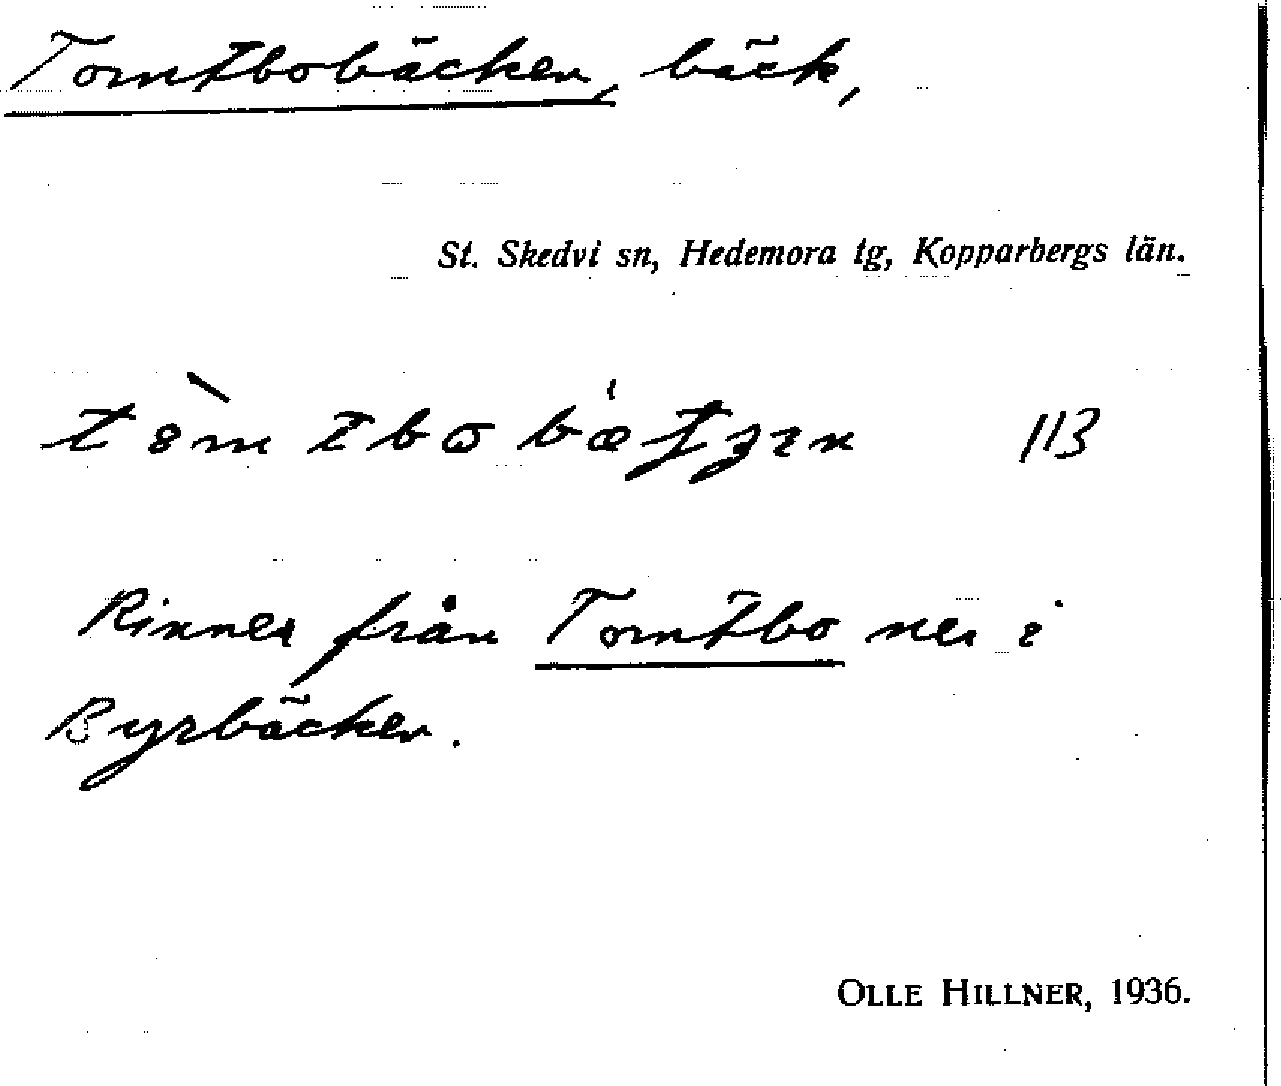 Tomtbobäcken, bäck,
St. Skedvi sn, Hedemora tg, Kopparbergs län.
113
Rinner från Tomtbo ner i
Byrbäcken.
OLLE HILLNER, 1936.